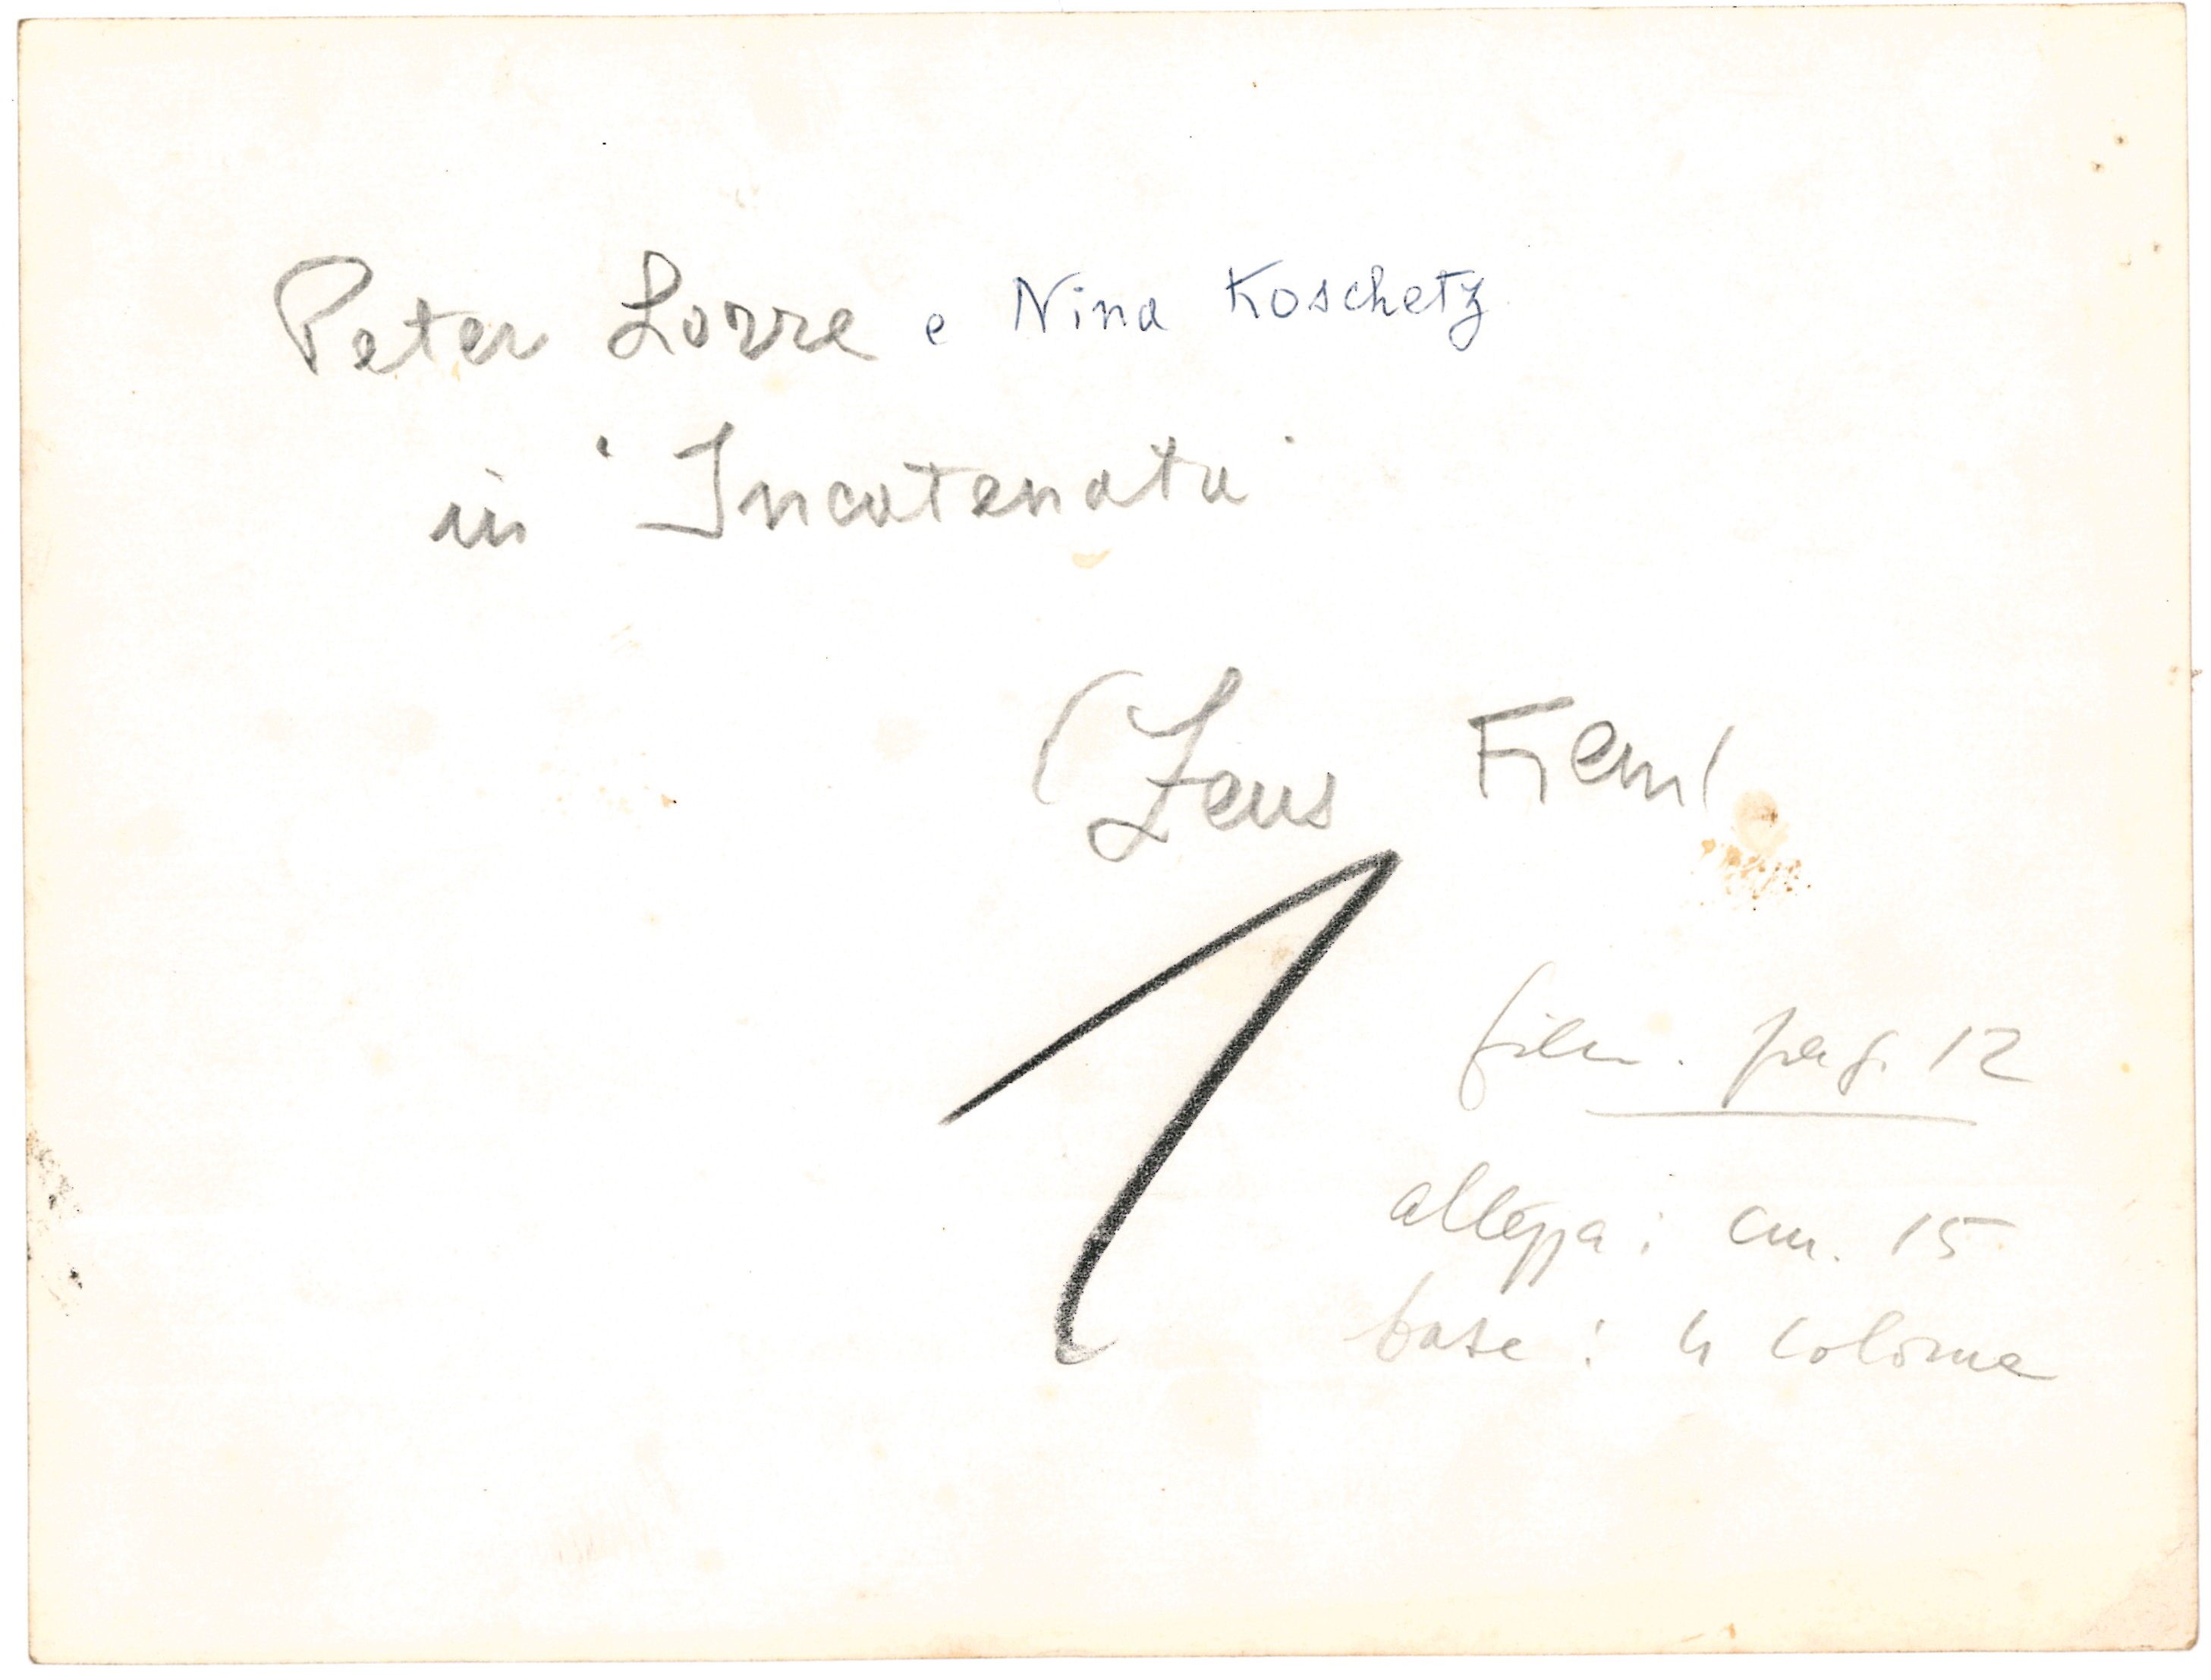 Peter Lorre e Nina Koschetz
in "Incatenata"
(Zeus Film)
1
film. pag. 12
altezza: cm. 15
base: 4 colonne